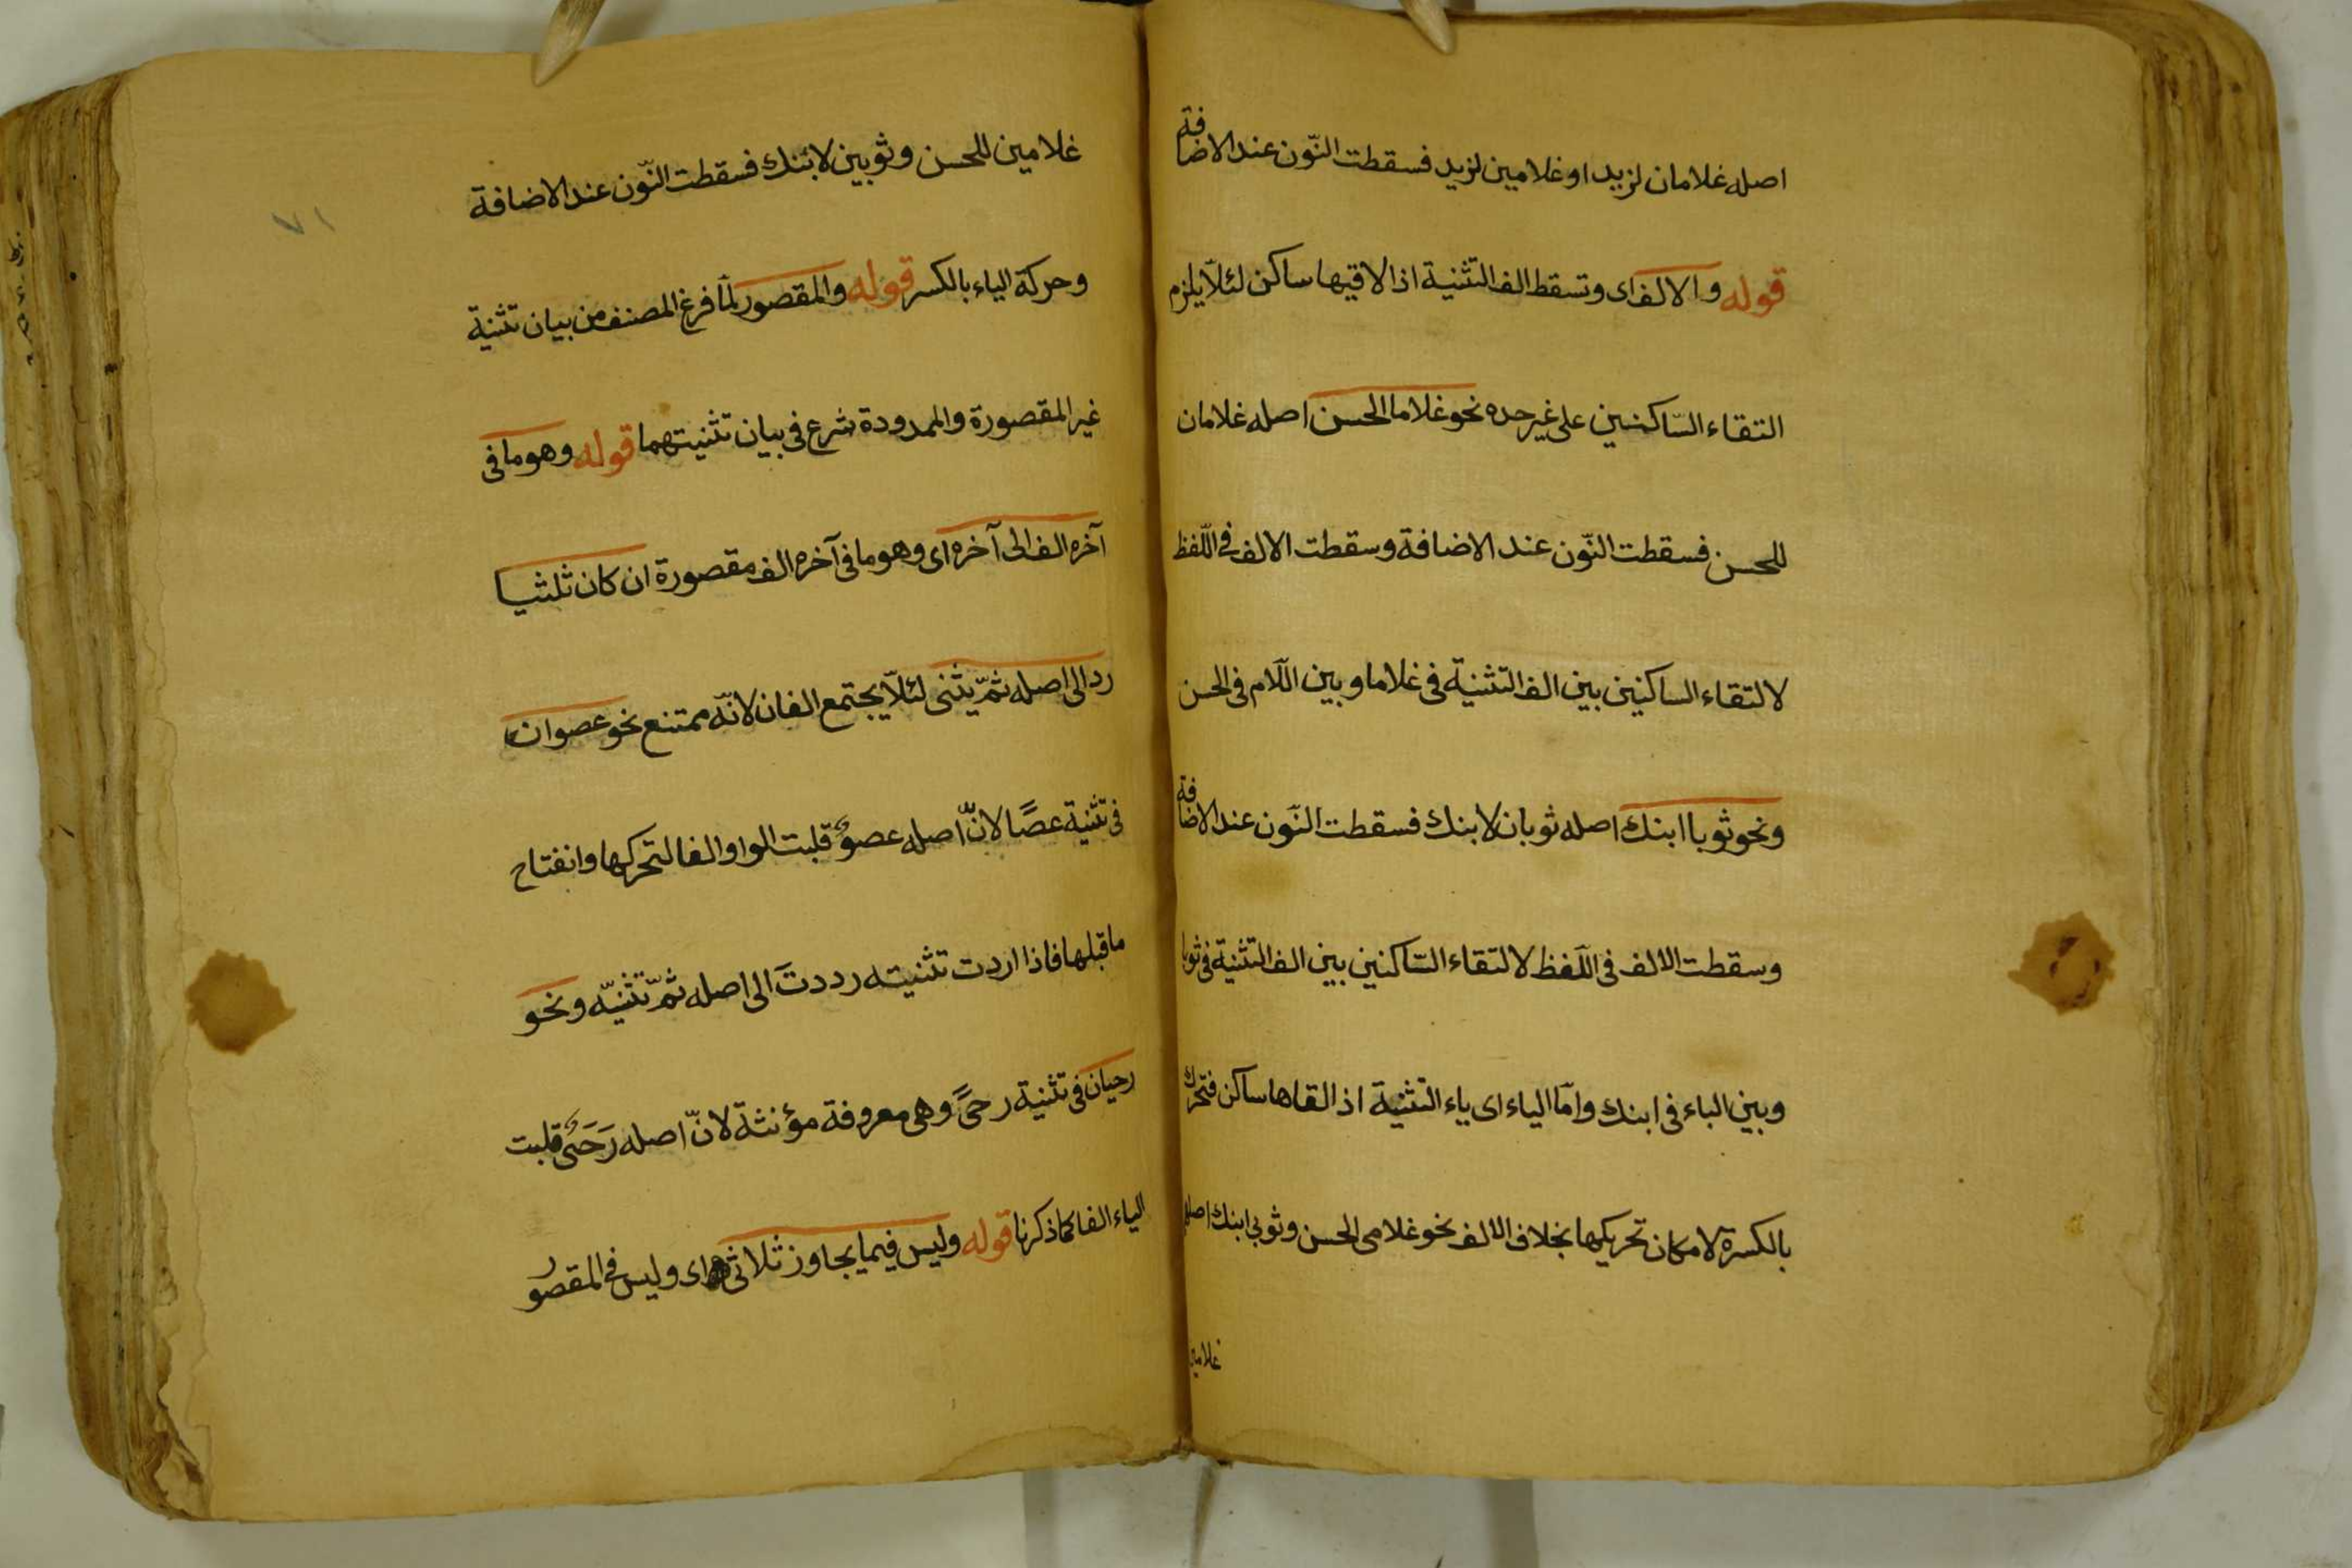 اصله غلامان لزيد او غلامين لزيد فسقطت النّون عند الاضافة
قوله والالف اى وتسقط الف التثنية اذا لاقيها ساكن لئلّا يلزم
التقاء السّاكنين على غير حده نحو غلاما الحسن اصله غلامان
للحسن فسقطت النّون عند الاضافة وسقطت الالف فى اللّفظ
لالتقاء الساكنين بين الف التثنية فى غلاما وبين اللّام فى الحسن
ونحو ثوبا ابنك اصله ثوبان لابنك فسقطت النّون عند الاضافة
وسقطت الالف فى اللّفظ لالتقاء السّاكنين بين الف التثنية فى ثوبا
وبين الباء فى ابنك وامّا الياء اى ياء التّثنية اذ القاها ساكن فتحرك
بالكسرة لامكان تحريكها بخلاف الالف نحو غلامى الحسن وثوبى ابنك اصله
غلامين
غلامين للحسن وثوبين لابنك فسقطت النّون عند الاضافة
وحركة الياء بالكسر قوله والمقصور لمّا فرغ المصنف من بيان تثنية
غير المقصورة والممدودة شرع فى بيان تثنيتهما قوله وهو ما فى
آخره الف الى آخره اى وهو ما فى آخره الف مقصورة ان كان ثلثيا
رد الى اصله ثمّ يثنى لئلّا يجتمع الفان لانّه ممتنع نحو عصوان
فى تثنية عصًا لانّ اصله عصوٌ قلبت الواو الفا لتحركها وانفتاح
ما قبلها فاذا اردت تثنيته رددتَ الى اصله ثمّ تثنيّه ونحو
رحيان فى تثنية رحىً وهى معروفة مؤنثة لانّ اصله رَحَىٌ قلبت
الياء الفا كما ذكرنا قوله وليس فيما يجاوز ثلاثى اى وليس فى المقصور
٧١